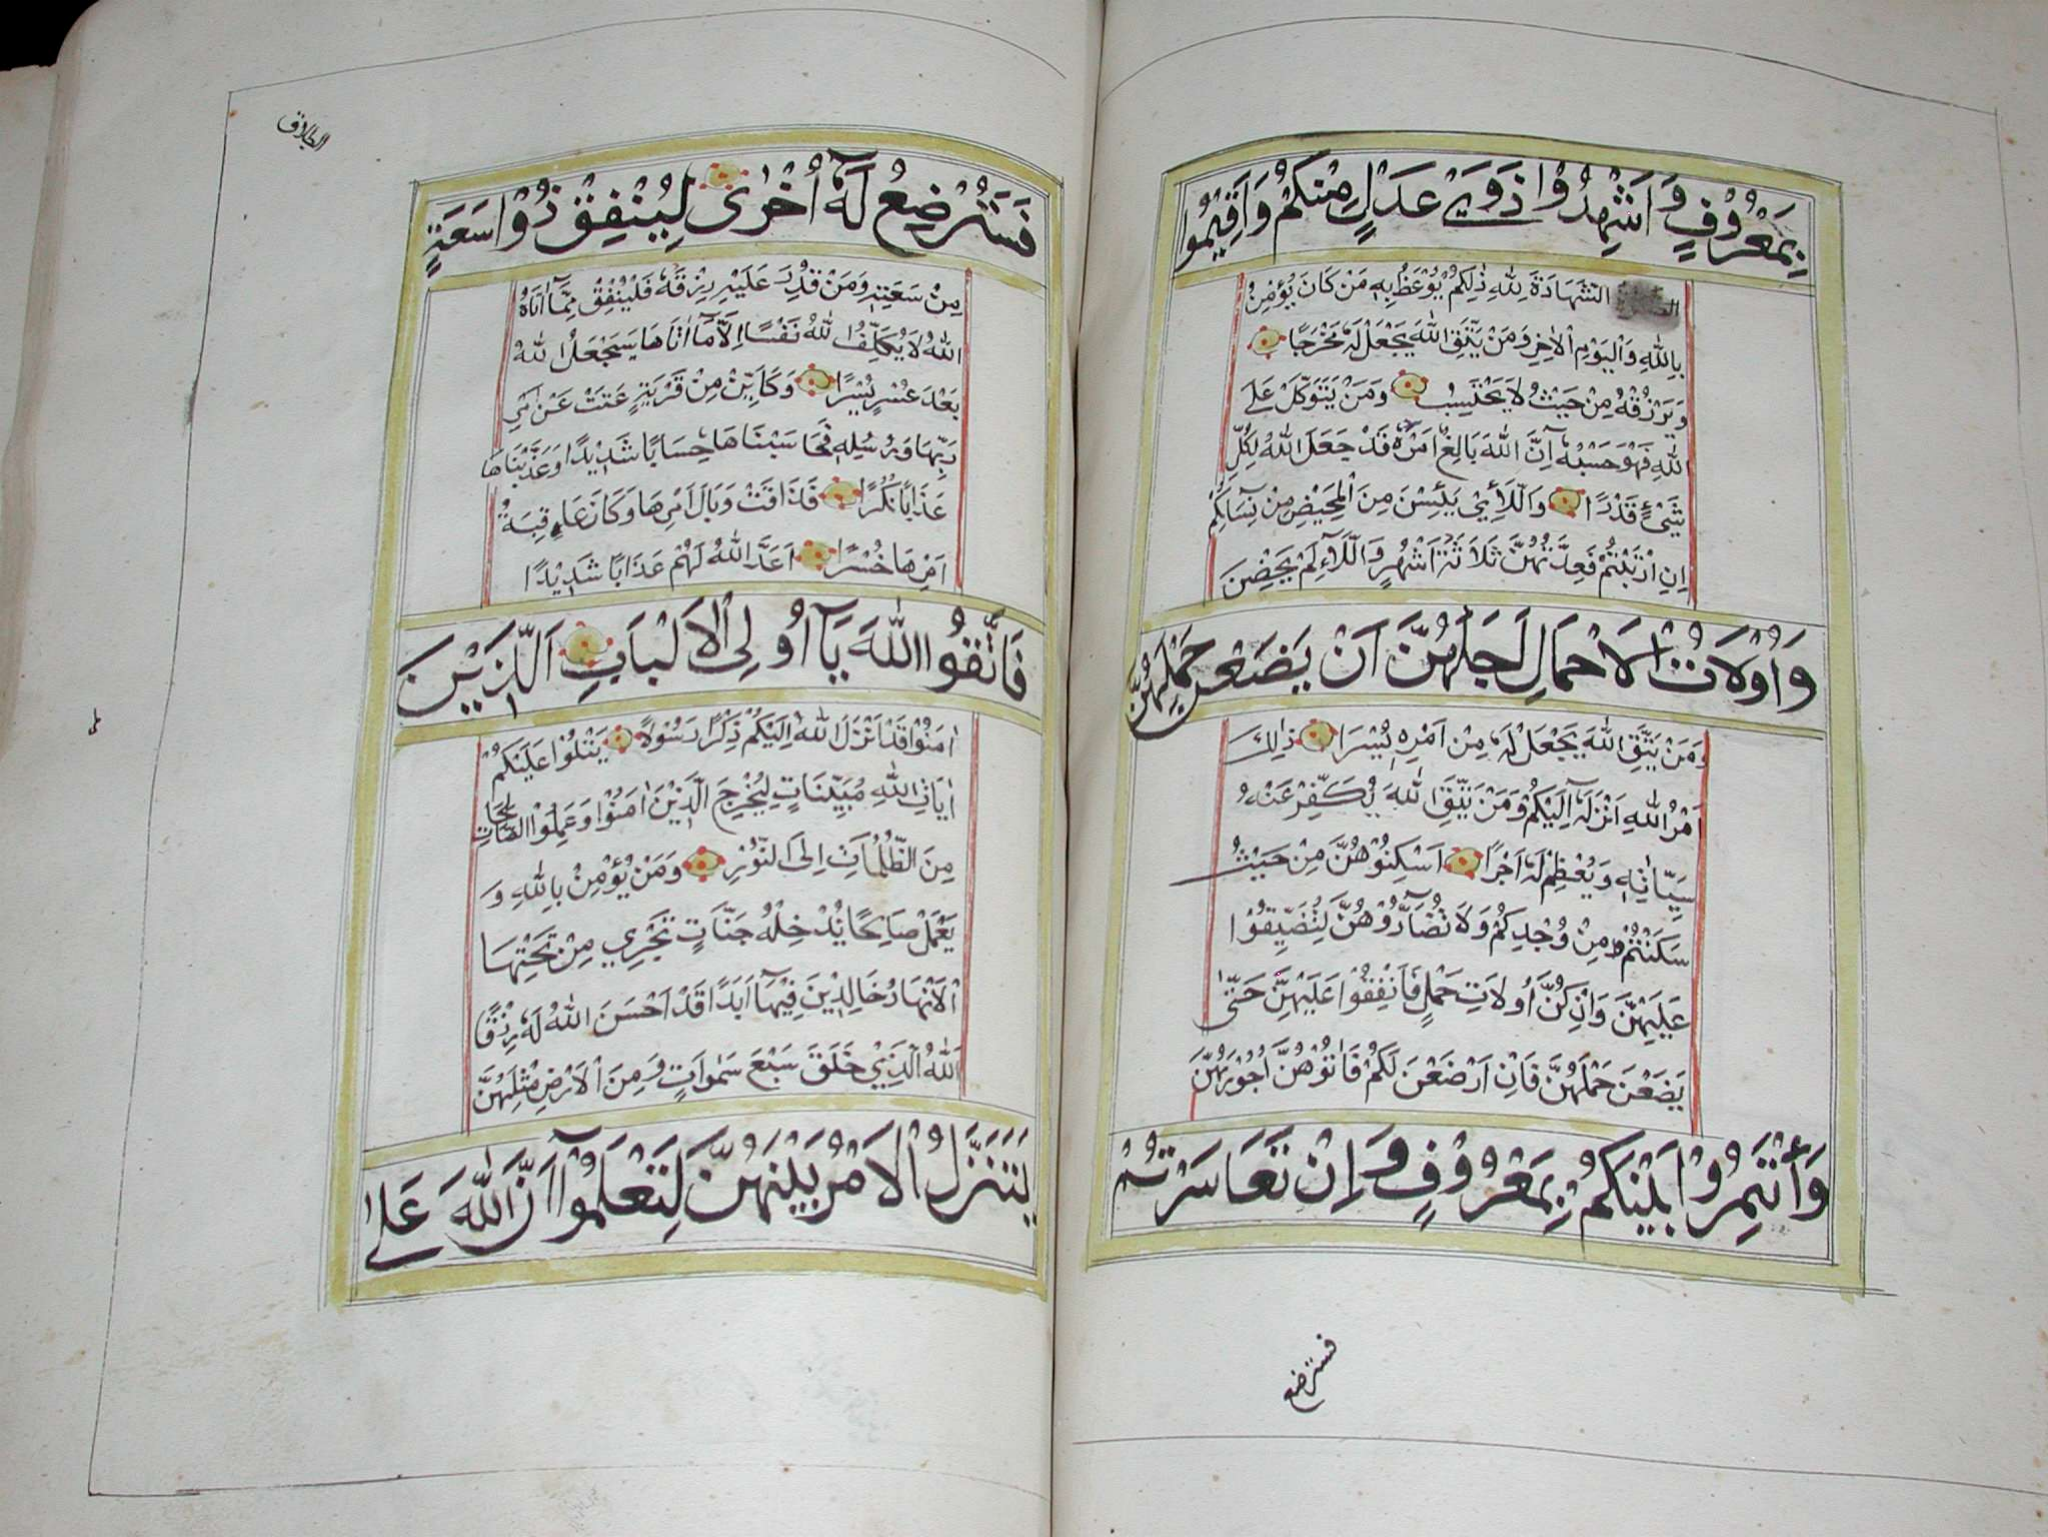 بِمَعْرُوْفٍ وَاَشْهِدُوْا ذَوَيْ عَدْلٍ مِنْكُمْ وَاَقِيْمُوا
الشَّهَادَةَ لِلّٰهِ ذٰلِكُمْ يُوْعَظُ بِهٖ مَنْ كَانَ يُؤْمِنُ
بِاللّٰهِ وَالْيَوْمِ الْاٰخِرِ وَمَنْ يَتَّقِ اللّٰهَ يَجْعَلْ لَهُ مَخْرَجًا
وَيَرْزُقْهُ مِنْ حَيْثُ لَا يَحْتَسِبُ وَمَنْ يَتَوَكَّلْ عَلَى
اللّٰهِ فَهُوَ حَسْبُهُ اِنَّ اللّٰهَ بَالِغُ اَمْرِهٖ قَدْ جَعَلَ اللّٰهُ لِكُلِّ
شَيْءٍ قَدْرًا وَاللَّائِيْ يَئِسْنَ مِنَ الْمَحِيْضِ مِنْ نِسَائِكُمْ
اِنِ ارْتَبْتُمْ فَعِدَّتُهُنَّ ثَلَاثَةُ اَشْهُرٍ وَاللَّاءِ لَمْ يَحِضْنَ
وَاُوْلَاتُ الْاَحْمَالِ اَجَلُهُنَّ اَنْ يَضَعْنَ حَمْلَهُنَّ
وَمَنْ يَتَّقِ اللّٰهَ يَجْعَلْ لَهُ مِنْ اَمْرِهٖ يُسْرًا ذٰلِكَ
اَمْرُ اللّٰهِ اَنْزَلَهُ اِلَيْكُمْ وَمَنْ يَتَّقِ اللّٰهَ يُكَفِّرْ عَنْهُ
سَيِّاٰتِهٖ وَيُعْظِمْ لَهُ اَجْرًا اَسْكِنُوْهُنَّ مِنْ حَيْثُ
سَكَنْتُمْ مِنْ وُجْدِكُمْ وَلَا تُضَآرُّوْهُنَّ لِتُضَيِّقُوْا
عَلَيْهِنَّ وَاِنْ كُنَّ اُولَاتِ حَمْلٍ فَاَنْفِقُوْا عَلَيْهِنَّ حَتّٰى
يَضَعْنَ حَمْلَهُنَّ فَاِنْ اَرْضَعْنَ لَكُمْ فَاٰتُوْهُنَّ اُجُوْرَهُنَّ
وَأْتَمِرُوْا بَيْنَكُمْ بِمَعْرُوْفٍ وَاِنْ تَعَاسَرْتُمْ
فسترضع
الطلاق
فَسَتُرْضِعُ لَهُ اُخْرٰى لِيُنْفِقْ ذُوْا سَعَةٍ
مِنْ سَعَتِهٖ وَمَنْ قُدِرَ عَلَيْهِ رِزْقُهُ فَلْيُنْفِقْ مِمَّآ اٰتَاهُ
اللّٰهُ لَا يُكَلِّفُ اللّٰهُ نَفْسًا اِلَّا مَآ اٰتَاهَا سَيَجْعَلُ اللّٰهُ
بَعْدَ عُسْرٍ يُسْرًا وَكَاَيِّنْ مِنْ قَرْيَةٍ عَتَتْ عَنْ اَمْرِ
رَبِّهَا وَرُسُلِهٖ فَحَاسَبْنَاهَا حِسَابًا شَدِيْدًا وَعَذَّبْنَاهَا
عَذَابًا نُكْرًا فَذَاقَتْ وَبَالَ اَمْرِهَا وَكَانَ عَاقِبَةُ
اَمْرِهَا خُسْرًا اَعَدَّ اللّٰهُ لَهُمْ عَذَابًا شَدِيْدًا
فَاتَّقُوا اللّٰهَ يَآ اُولِى الْاَلْبَابِ اَلَّذِيْنَ
اٰمَنُوْا قَدْ اَنْزَلَ اللّٰهُ اِلَيْكُمْ ذِكْرًا رَسُوْلًا يَتْلُوْا عَلَيْكُمْ
اٰيَاتِ اللّٰهِ مُبَيِّنَاتٍ لِيُخْرِجَ الَّذِيْنَ اٰمَنُوْا وَعَمِلُوا الصَّالِحَاتِ
مِنَ الظُّلُمَاتِ اِلَى النُّوْرِ وَمَنْ يُؤْمِنْ بِاللّٰهِ وَ
يَعْمَلْ صَالِحًا يُدْخِلْهُ جَنَّاتٍ تَجْرِيْ مِنْ تَحْتِهَا
الْاَنْهَارُ خَالِدِيْنَ فِيْهَآ اَبَدًا قَدْ اَحْسَنَ اللّٰهُ لَهُ رِزْقًا
اَللّٰهُ الَّذِيْ خَلَقَ سَبْعَ سَمٰوَاتٍ وَمِنَ الْاَرْضِ مِثْلَهُنَّ
يَتَنَزَّلُ الْاَمْرُ بَيْنَهُنَّ لِتَعْلَمُوْآ اَنَّ اللّٰهَ عَلٰى